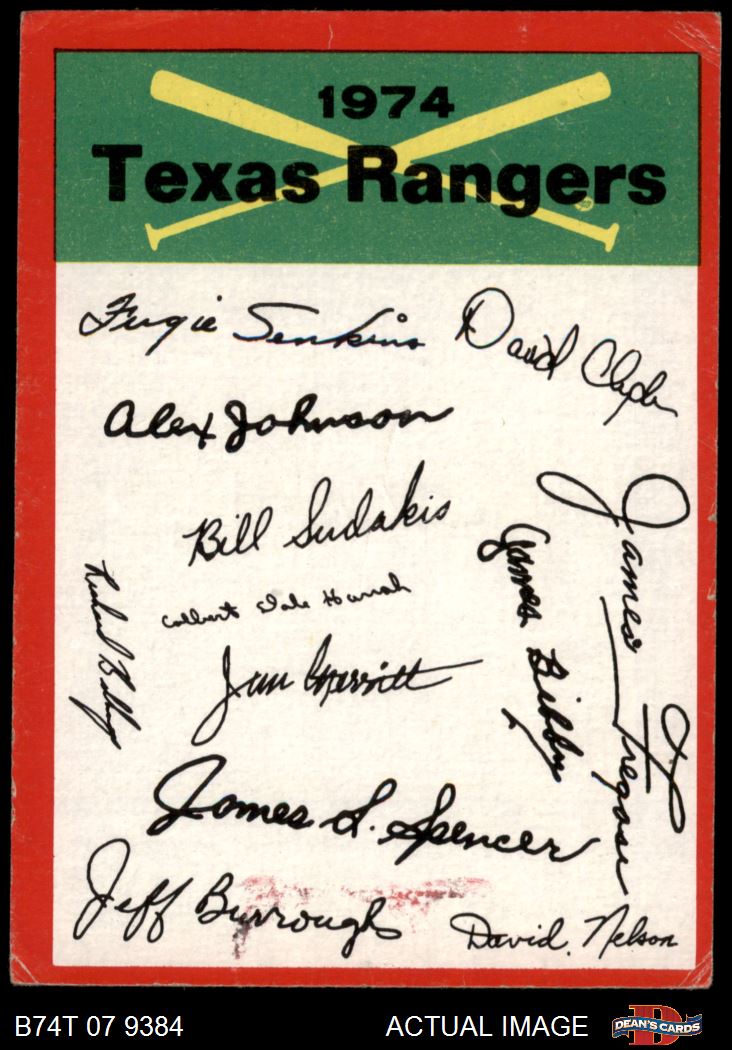 1974
Texas Rangers
Fergie Jenkins
David Clyde
Alex Johnson
Bill Sudakis
James L. Fregosi
James Bibby
Colbert Dale Hamrah
Richard Billings
Jim Merritt
James S. Spencer
Jeff Burroughs
David. Nelson
B74T 07 9384
ACTUAL IMAGE
DEAN'S CARDS